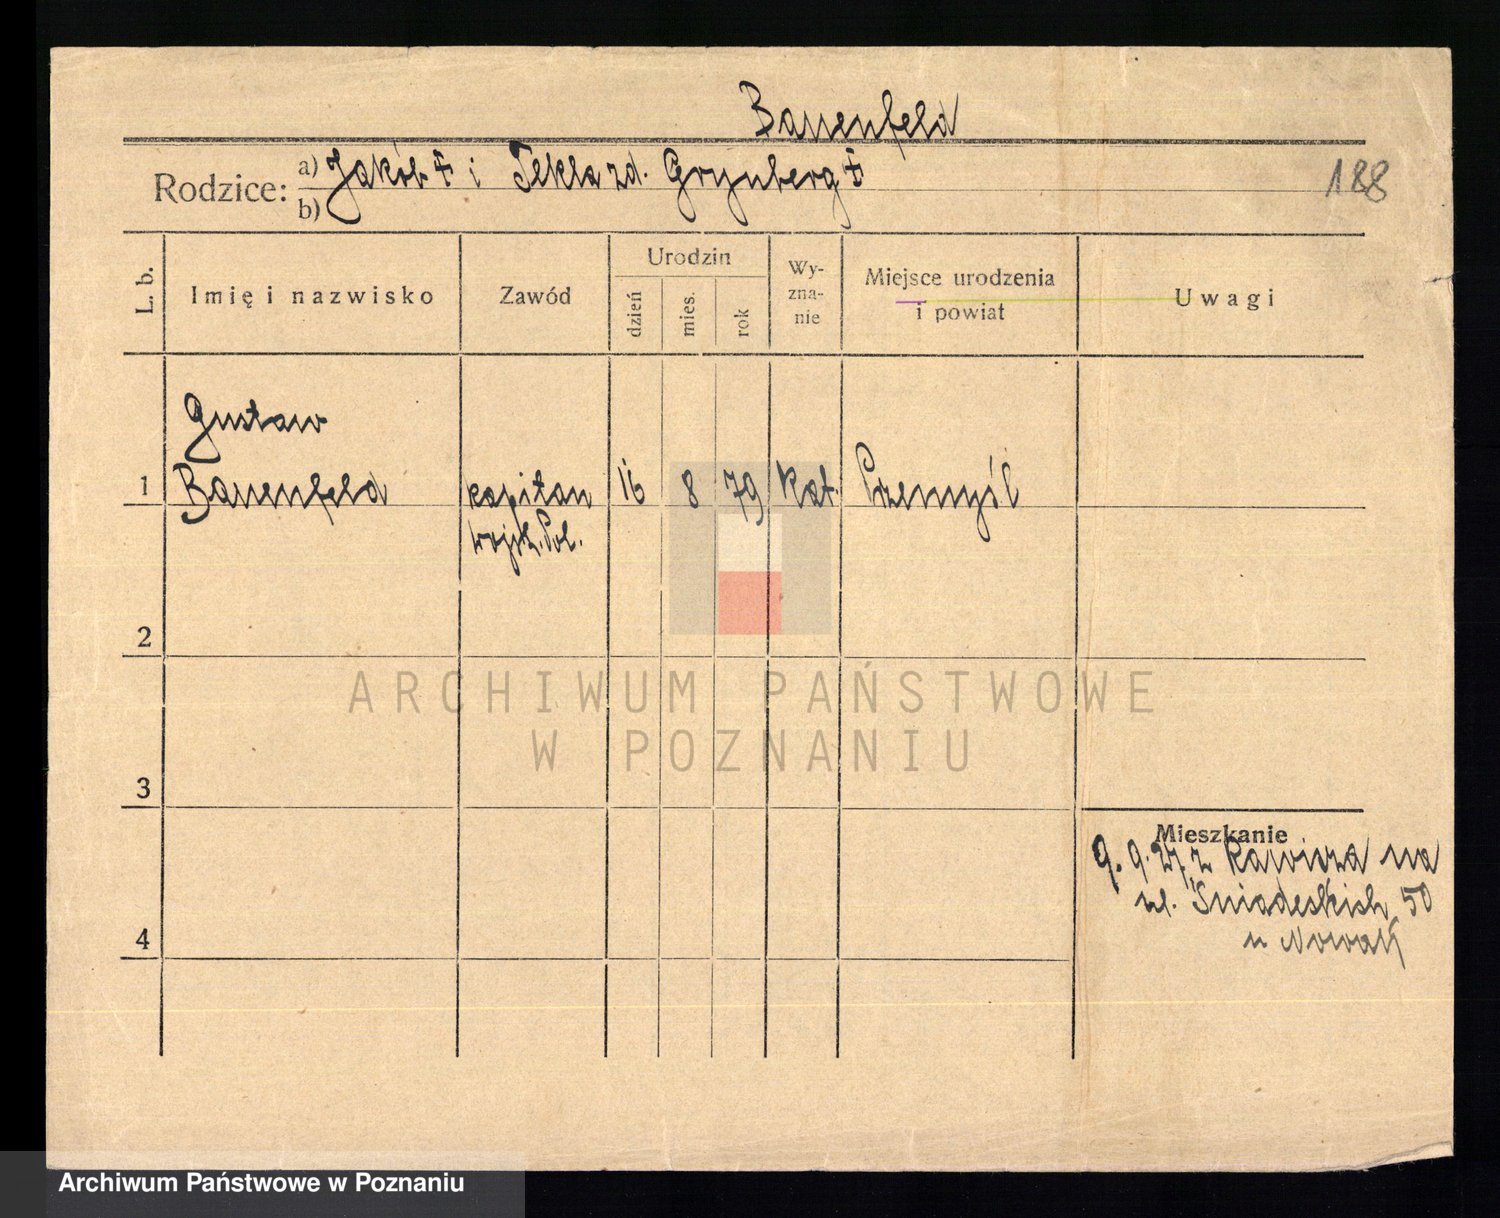 Bauenfeld
Rodzice: a) Jakób ‡ i Tekla zd. Grynberg ‡
b)
188
L. b.
Imię i nazwisko
Zawód
Urodzin
dzień
mies.
rok
Wy-
zna-
nie
Miejsce urodzenia
i powiat
Uwagi
Gustaw
1 Bauenfeld kapitan 16 8 79 Kat. Przemyśl
wojsk. Pol.
2
3
4
Mieszkanie
9. 9. 27 z Rawicza na
ul. Śniadeckich 50
u Nowak
ARCHIWUM PAŃSTWOWE
W POZNANIU
Archiwum Państwowe w Poznaniu